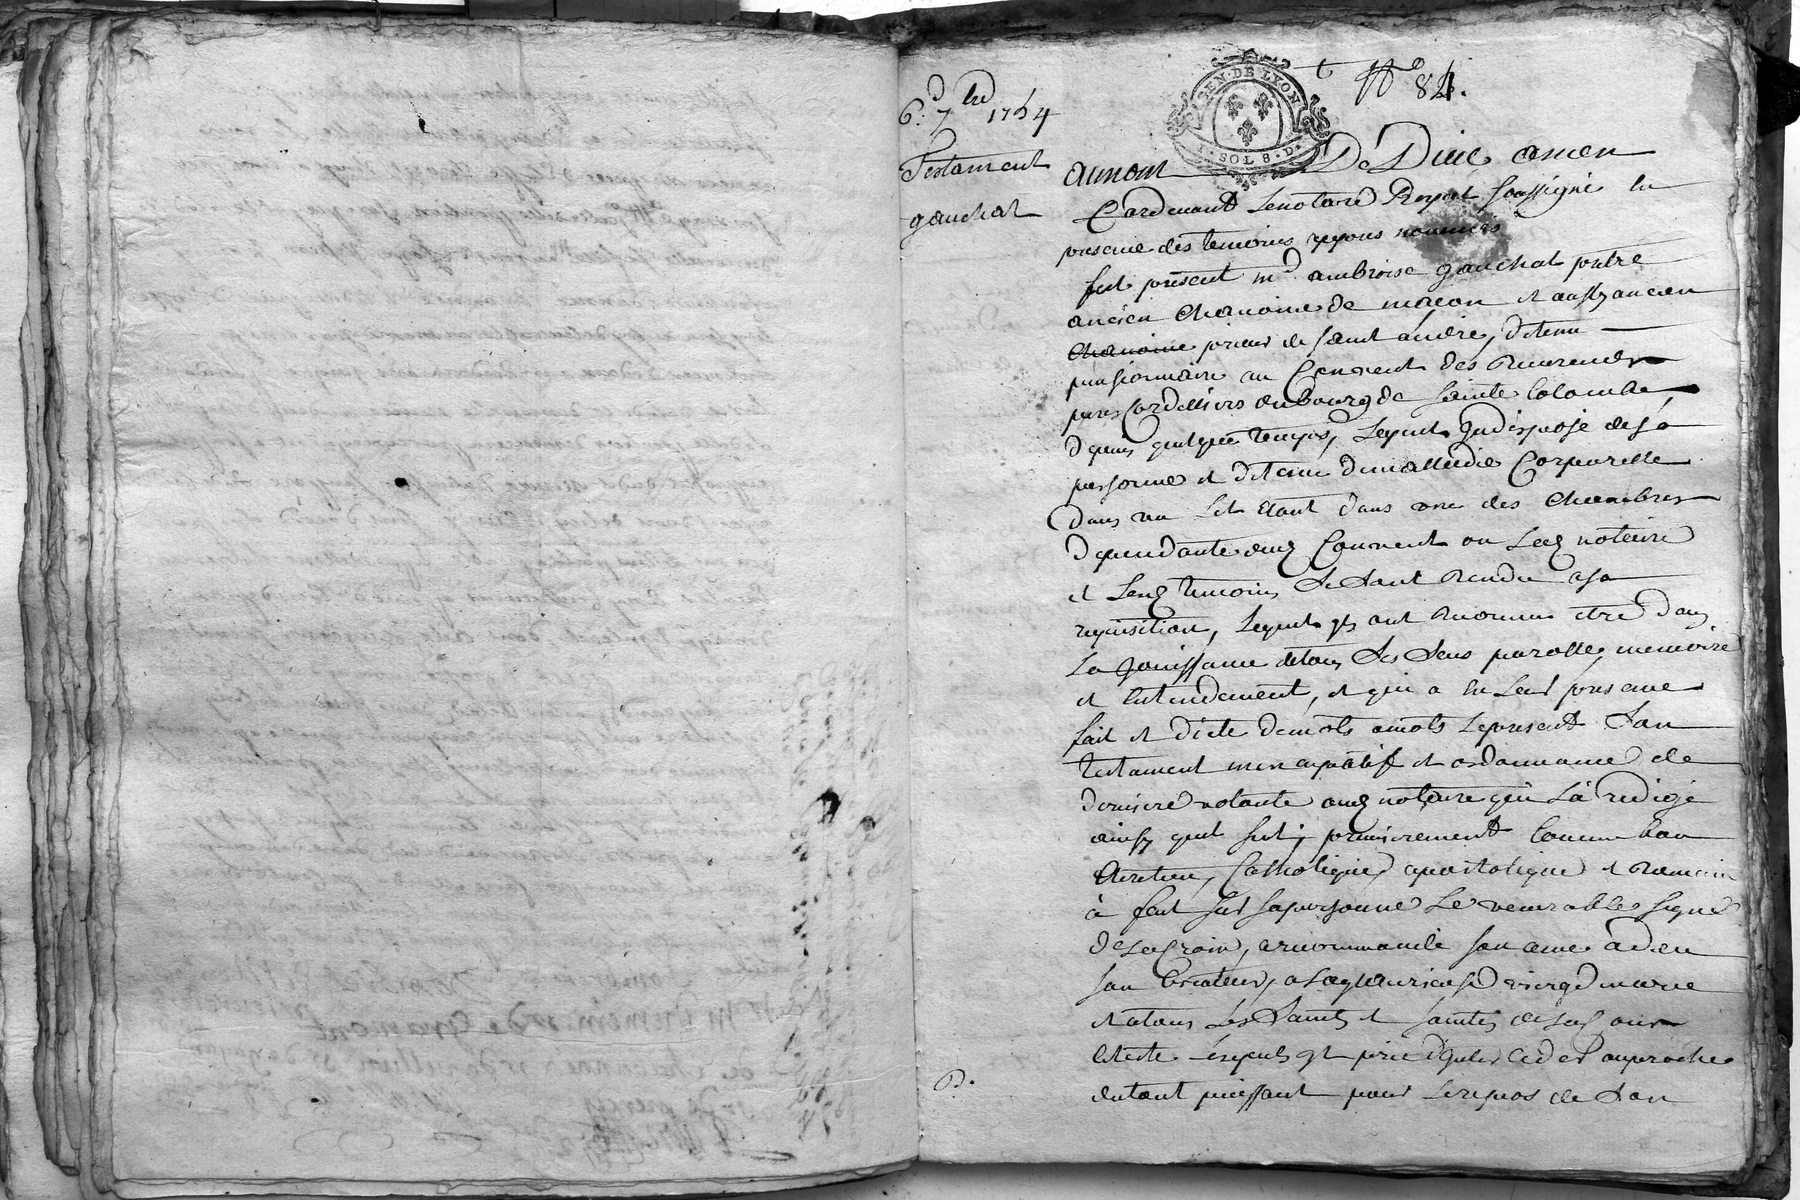 6.e 7bre 1754
Testament
gauchat
GEN · DE LYON
1 · SOL 8 · D.
N° 84.
aunom De Dieu amen
Pardevant Lenotaire Royal soussigné En
presence des temoins apres nommés
fut present m.e ambroise gauchat pretre
ancien chanoine de macon et aussy ancien
chanoine prieur de saint andré, detenu
pensionnaire au Convent des Reverends
peres Cordelliers du bourg de sainte Colombe,
depuis quelque temps, Lequel Indisposé de sa
personne et detenu de malladie Corporelle
dans un Lit etant dans une des chambres
dependante dud Couvent ou Led notaire
et Lesd temoins se sont Rendu a sa
requisition, Lequel ont Reconnu etre dans
La Jouissance detous ses sens parolle, memoire
et Entendement, et qui a En Leur presence
fait et dicté demots amots Lepresent son
testament noncupatif et ordonnance de
derniere volonté aud notaire qui La redigé
ainsy quil suit, premierement Comme bon
chretien, Catholique, apostolique et Romain
à fait sur sapersonne Le venerable signe
de La Croix, a recommandé son ame a dieu
son Createur, a Laglorieuse vierge marie
et atous Les saints et saintes de La Cour
Celeste Lesquels prié
dutout puissant pour Lerepos de son